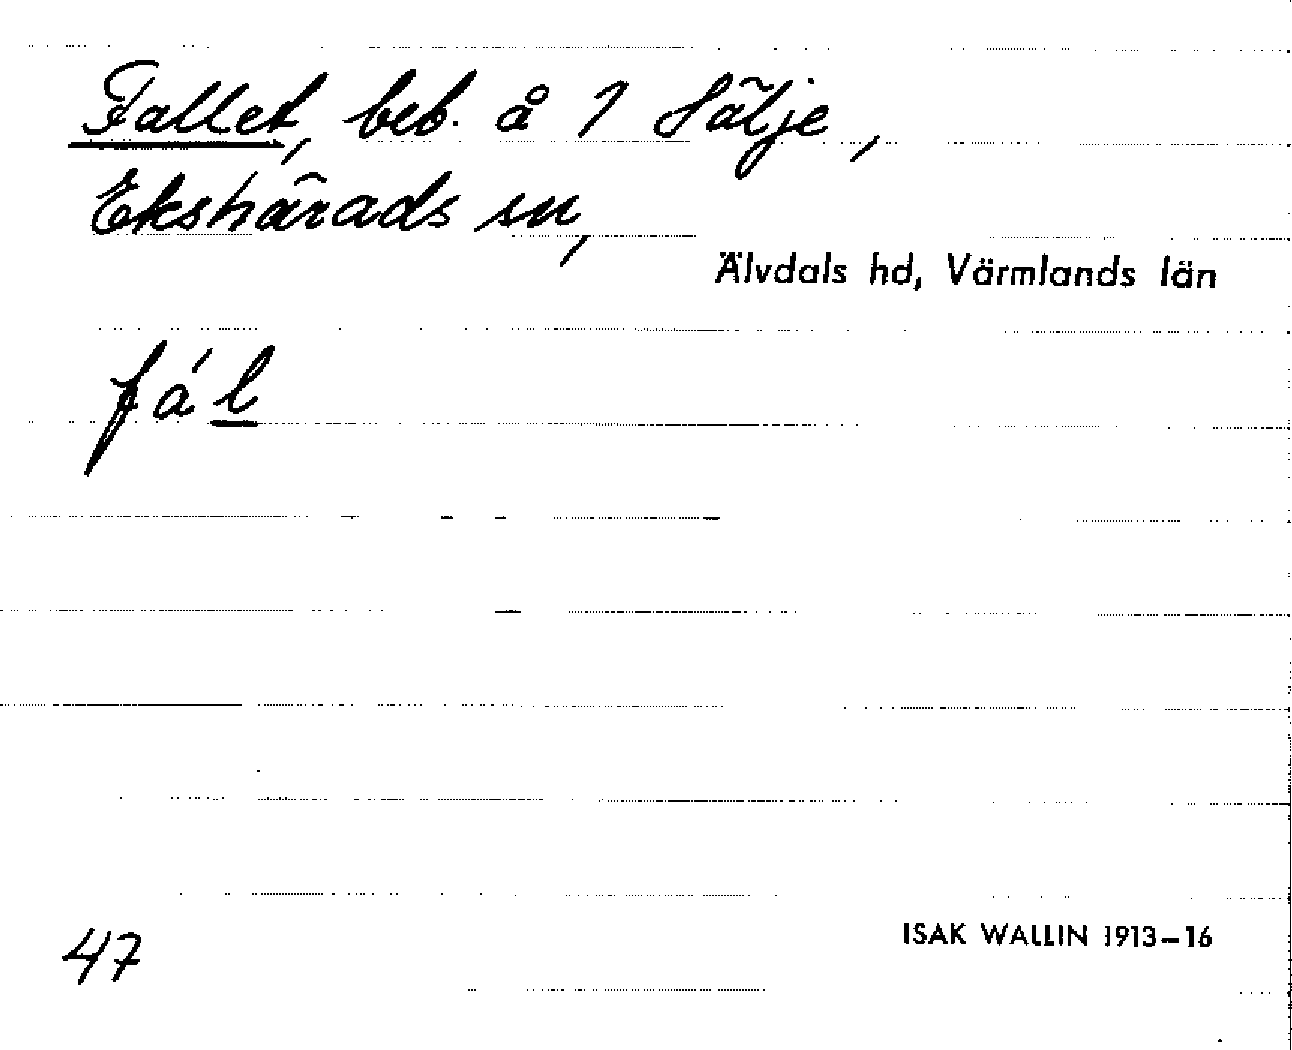 Fallet, beb. å 1 Sälje,
Ekshärads sn,
Älvdals hd, Värmlands län
fá l
47
ISAK WALLIN 1913–16